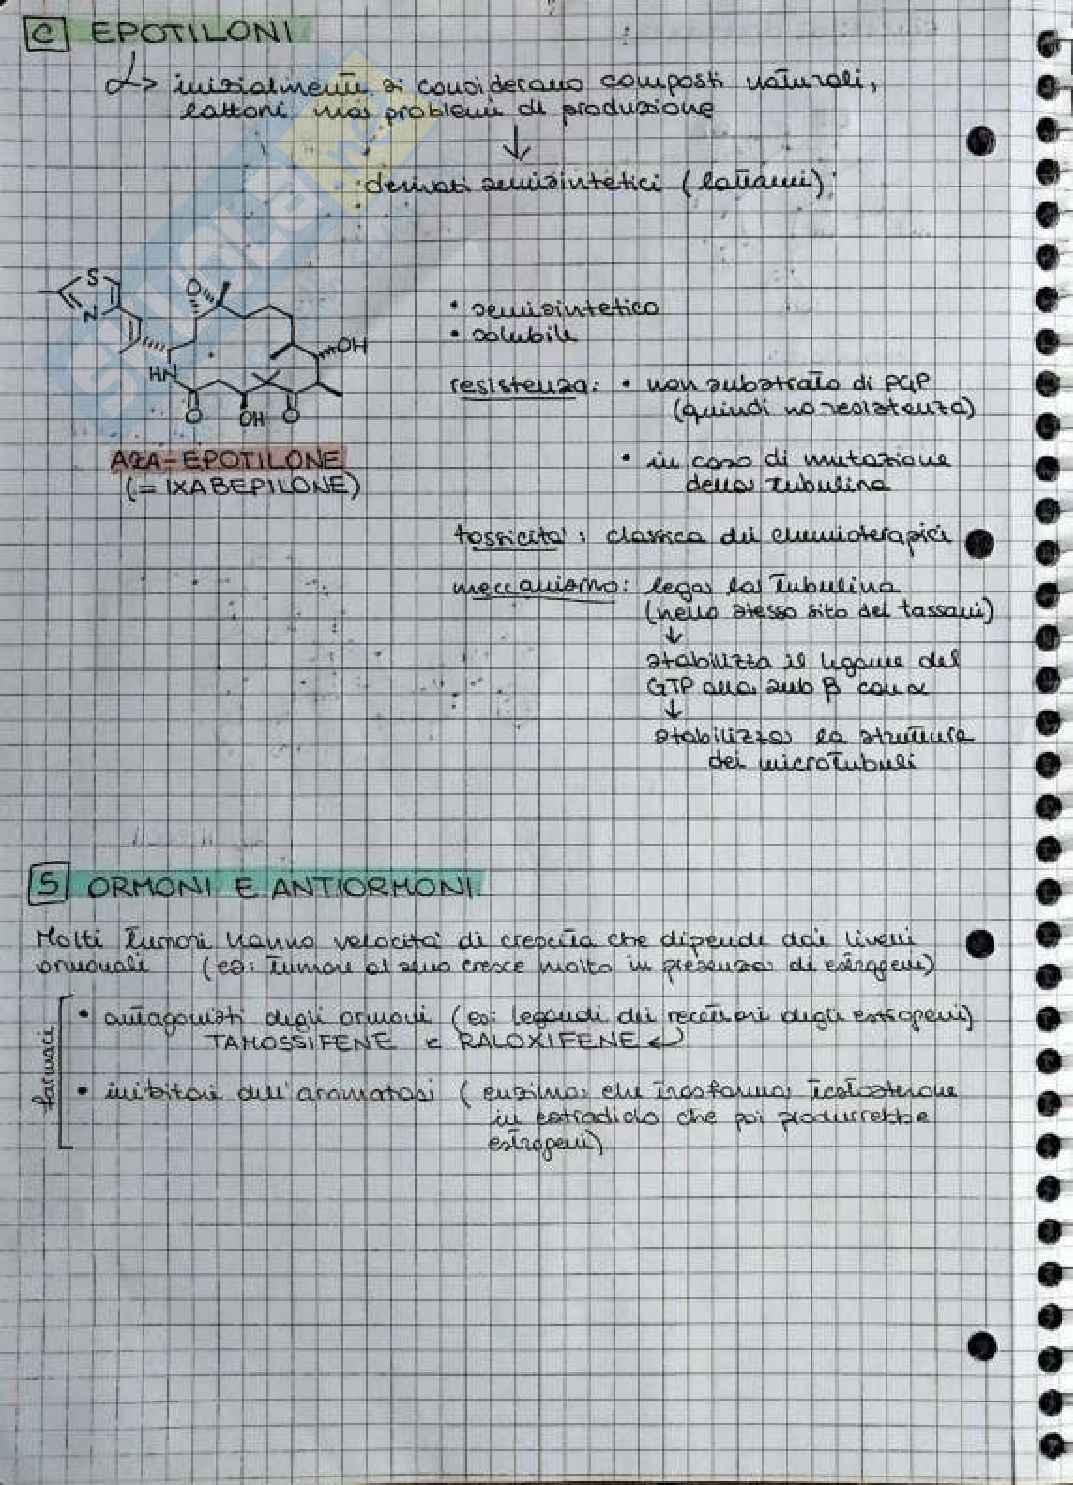 C EPOTILONI
↳ inizialmente si considerano composti naturali,
lattoni, ma problemi di produzione
↓
derivati semisintetici (lattami)
S
N
O
OH
HN
O
OH
O
• semisintetico
• solubile
resistenza: • non substrato di PGP
(quindi no resistenza)
AZA-EPOTILONE
(= IXABEPILONE)
• in caso di mutazione
della tubulina
tossicita': classica dei chemioterapici
meccanismo: lega la tubulina
(nello stesso sito dei tassani)
↓
stabilizza il legame del
GTP alla sub β con α
↓
stabilizza la struttura
dei microtubuli
5 ORMONI E ANTIORMONI
Molti tumori hanno velocità di crescita che dipende dai livelli
ormonali (es: tumore al seno cresce molto in presenza di estrogeni)
farmaci
• antagonisti degli ormoni (es: legandi dei recettori degli estrogeni)
TAMOSSIFENE e RALOXIFENE ↵
• inibitori dell'aromatasi (enzima che trasforma testosterone
in estradiolo che poi produrrebbe
estrogeni)